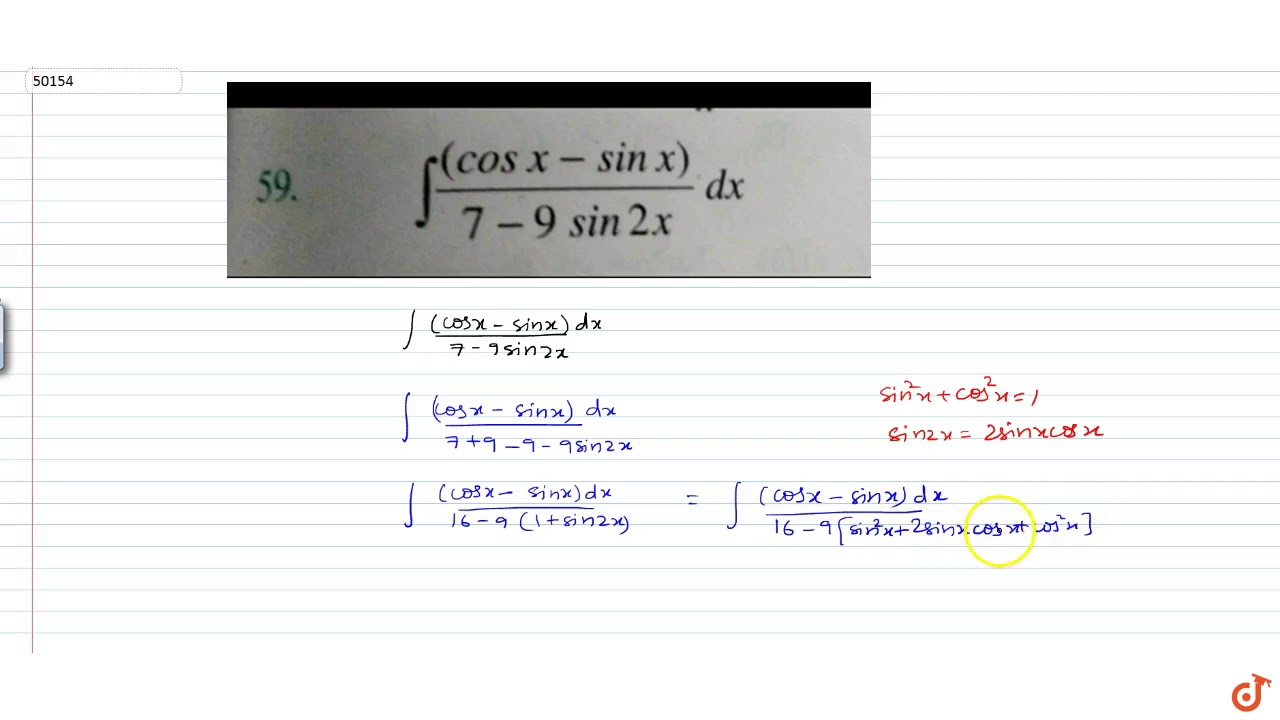 50154
59. ∫ (cos x − sin x) / 7 − 9 sin 2x dx
∫ (cosx − sinx) dx / 7 − 9sin2x
∫ (cosx − sinx) dx / 7+9−9−9sin2x
sin²x + cos²x = 1
sin2x = 2sinxcosx
∫ (cosx − sinx)dx / 16−9 (1+sin2x) = ∫ (cosx − sinx) dx / 16−9[sin²x+2sinx.cosx+cos²x]